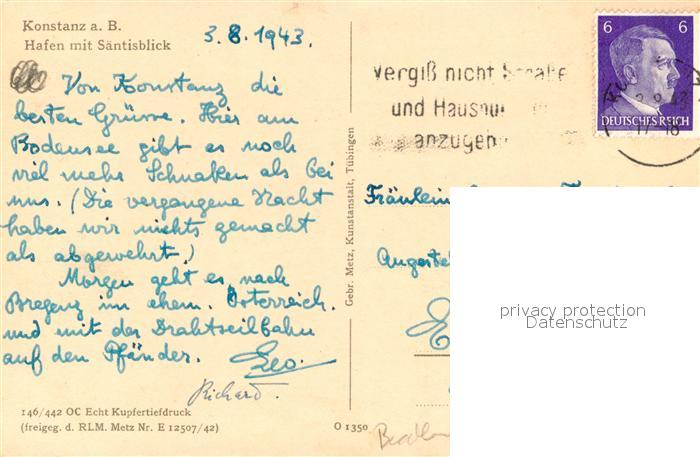 Konstanz a. B.
Hafen mit Säntisblick
3. 8. 1943.
Von Konstanz die
besten Grüsse. Hier am
Bodensee gibt es noch
viel mehr Schnaken als bei
uns. (Die vergangene Nacht
haben wir nichts gemacht
als abgewehrt.)
Morgen geht es nach
Bregenz im ehem. Österreich.
und mit der Drahtseilbahn
auf den Pfänder. Leo.
Richard.
146/442 OC Echt Kupfertiefdruck
(freigeg. d. RLM. Metz Nr. E 12507/42)
O 1350
Gebr. Metz, Kunstanstalt, Tübingen
Vergiß nicht Straße
und Hausnu
anzugeben
6 6
DEUTSCHES REICH
Fräulein
Angestel
privacy protection
Datenschutz